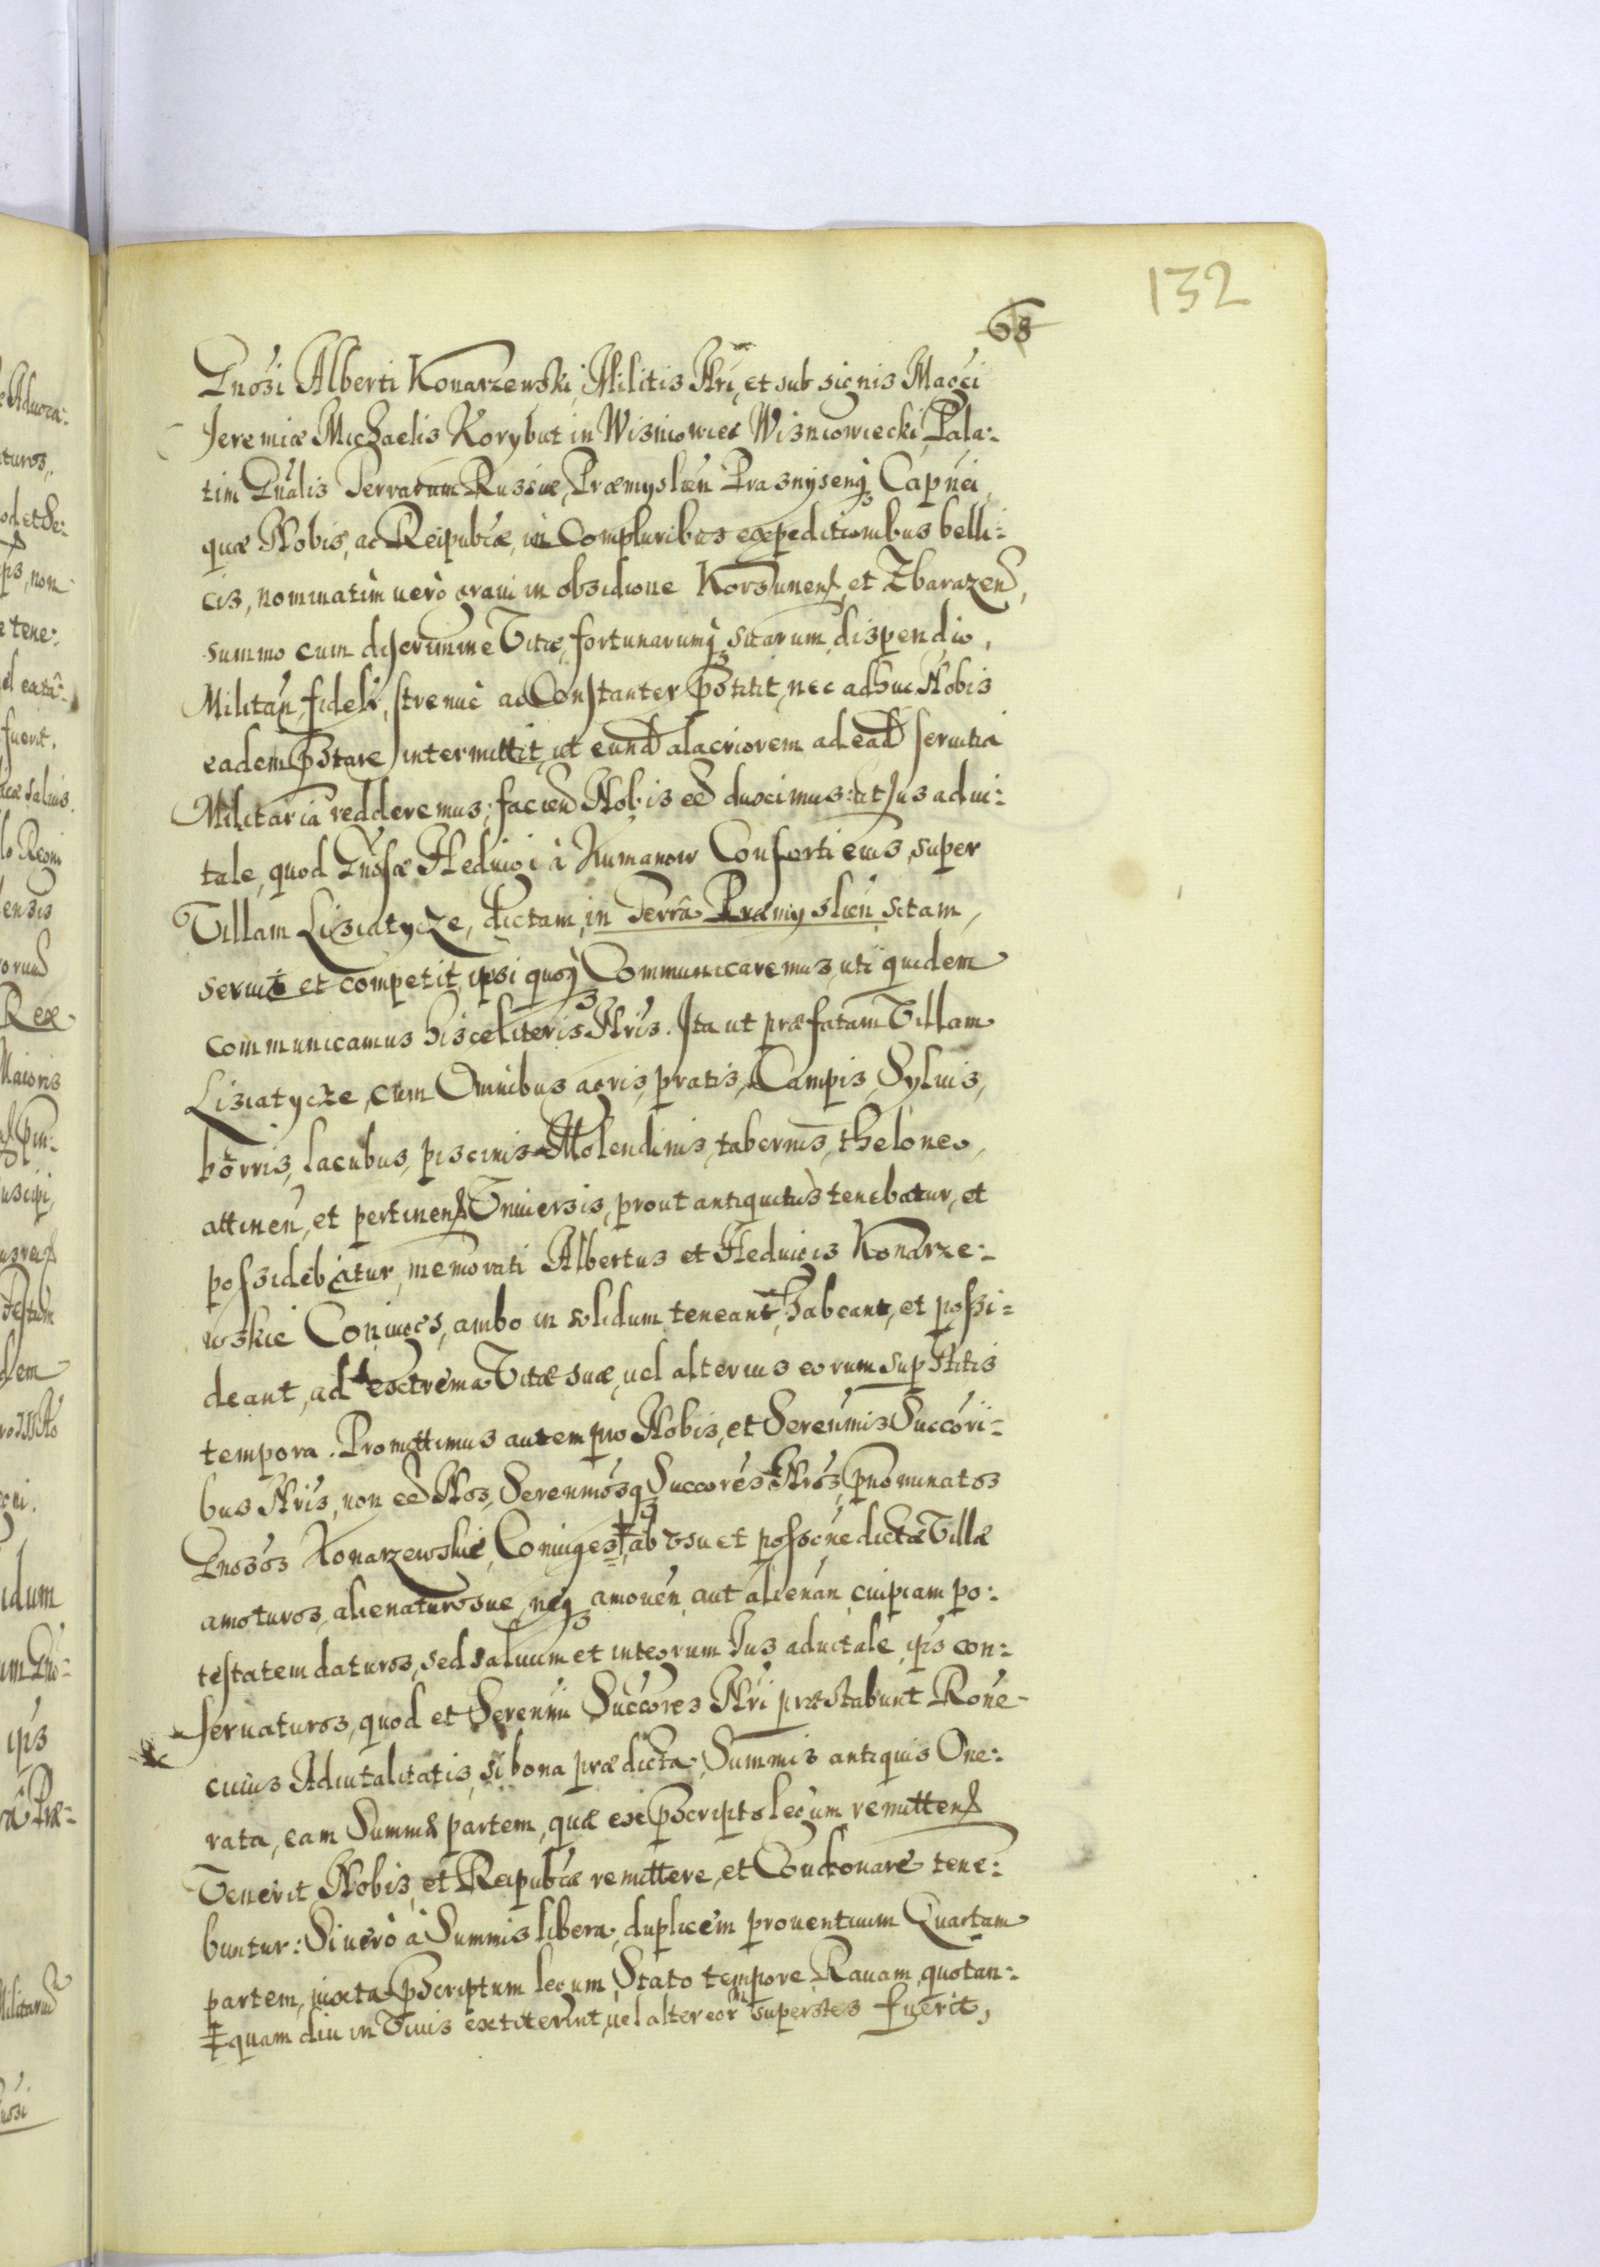 132
68
Gnosi Alberti Konarzewski, Militis Nri, et sub signis Magci
Jeremiæ Michaelis Korybut in Wisniowiec Wisniowiecki, Pala:
tini Gnalis Terrarum Russiæ, Præmyslien Prasnysenq Capnei,
quæ Nobis, ac Reipubcæ, in Compluribus expeditionibus belli:
cis, nominatim verò gravi in obsidione Korsunens, et Zbarazens,
summo cum discrimine Vitæ, fortunarumq sitarum, dispendio,
Militan, fidelr, strenuè ac Constanter pstitit, nec adhuc Nobis
eadem pstare intermittit, ut eund alacriorem ad ead servitia
Militaria redderemus, faciend Nobis ee duximus: ut Jus advi:
tale, quod Gnosæ Hedvigi à Humanow Consorti eius, super
Villam Lisiatycze, dictam, in Terrâ Præmyslien sitam,
servit et competit, ipsi quoq Communicaremus, uti quidem
communicamus hisce literis Nris. Ita ut præfatam Villam
Lisiatycze, cum Omnibus agris, pratis, Campis, Sylvis,
hortis, lacubus, piscinis, Molendinis, tabernis, theloneo,
attinen, et pertinens Universis, prout antiquitus tenebatur, et
possidebatur, memorati Albertus et Hedvigis Konarze:
wskie Coniuges, ambo in solidum teneant, habeant, et possi:
deant, ad extrema Vitæ suæ, vel alterius eorum supstitis
tempora. Promittimus autem pro Nobis, et Serenmis Succori:
bus Nris, non ee Nos, Serenmosq Succores Nros, pnominatos
Gnosos Konarzewskie, Coniuges ‡, ab usu et possone dictæ Villæ
amoturos, alienaturosve, neq amoven, aut alienan, cuipiam po:
testatem daturos, sed salvum et integrum Jus advitale, ips con:
servaturos, quod et Serenmi Succores Nri præstabunt Rone
cuius Advitalitatis, si bona prædicta, Summis antiquis One:
rata, eam Summæ partem, quæ ex pscripto legum remittens
Venerit Nobis, et Reipubcæ remittere, et Condonare tene:
buntur: Si verò à Summis libera, duplicem proventuum Quartam
partem, iuxta pscriptum legum, Stato tempore, Ravam, quotan:
‡ quam diu in Vivis extiterint, vel alter eor superstes fuerit,